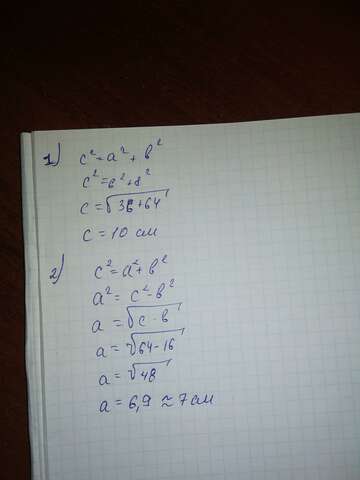 1) c² = a² + b²
c² = 6² + 8²
c = √36+64
c = 10 см
2) c² = a² + b²
a² = c² - b²
a = √c - b
a = √64-16
a = √48
a = 6,9 ≈ 7 см